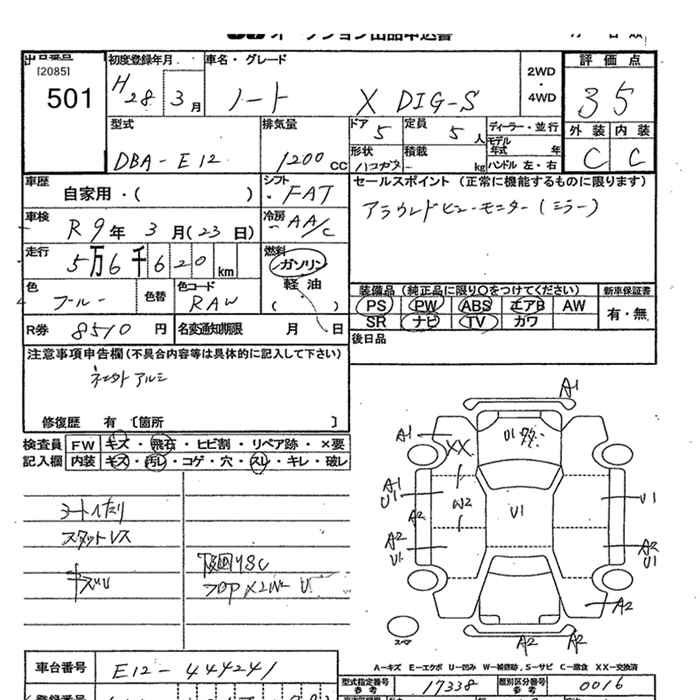 オークション出品申込書
出品番号 初度登録年月 車名・グレード 評価点
[2085]
501
H28 3月 ノート X DIG-S 2WD・4WD 35
外装 内装
C C
型式 排気量 ドア 5 定員 5人 ディーラー・並行
DBA-E12 1200cc 形状 積載 kg モデル年式 年
ハンドル 左・右
車歴 シフト セールスポイント (正常に機能するものに限ります)
自家用・( ) FAT
アラウンドビューモニター(ミラー)
車検 冷房
R9年 3月(23日) AA/C
走行 燃料
5万6千620km ガソリン
軽油
( )
色 色替 色コード
ブルー RAW
装備品 (純正品に限り〇をつけてください) 新車保証書
PS PW ABS エアB AW 有・無
SR ナビ TV カワ
R券 8510円 名変通知期限 月 日
後日品
注意事項申告欄(不具合内容等は具体的に記入して下さい)
修復歴 有 [箇所 ]
検査員 FW キズ・飛石・ヒビ割・リペア跡・×要
記入欄 内装 キズ・汚レ・コゲ・穴・スレ・キレ・破レ
シートヘたり
スタットレス
A1
A1 XX U1
A1 U1 A2 W2 U1 U1
A2 U1 A2 U1
A2
スペア A2 A2
A-キズ E-エクボ U-凹み W-補修跡 S-サビ C-腐食 XX-交換済
車台番号 E12-444241
型式指定番号 17338 類別区分番号 0016
参考 参考
登録番号